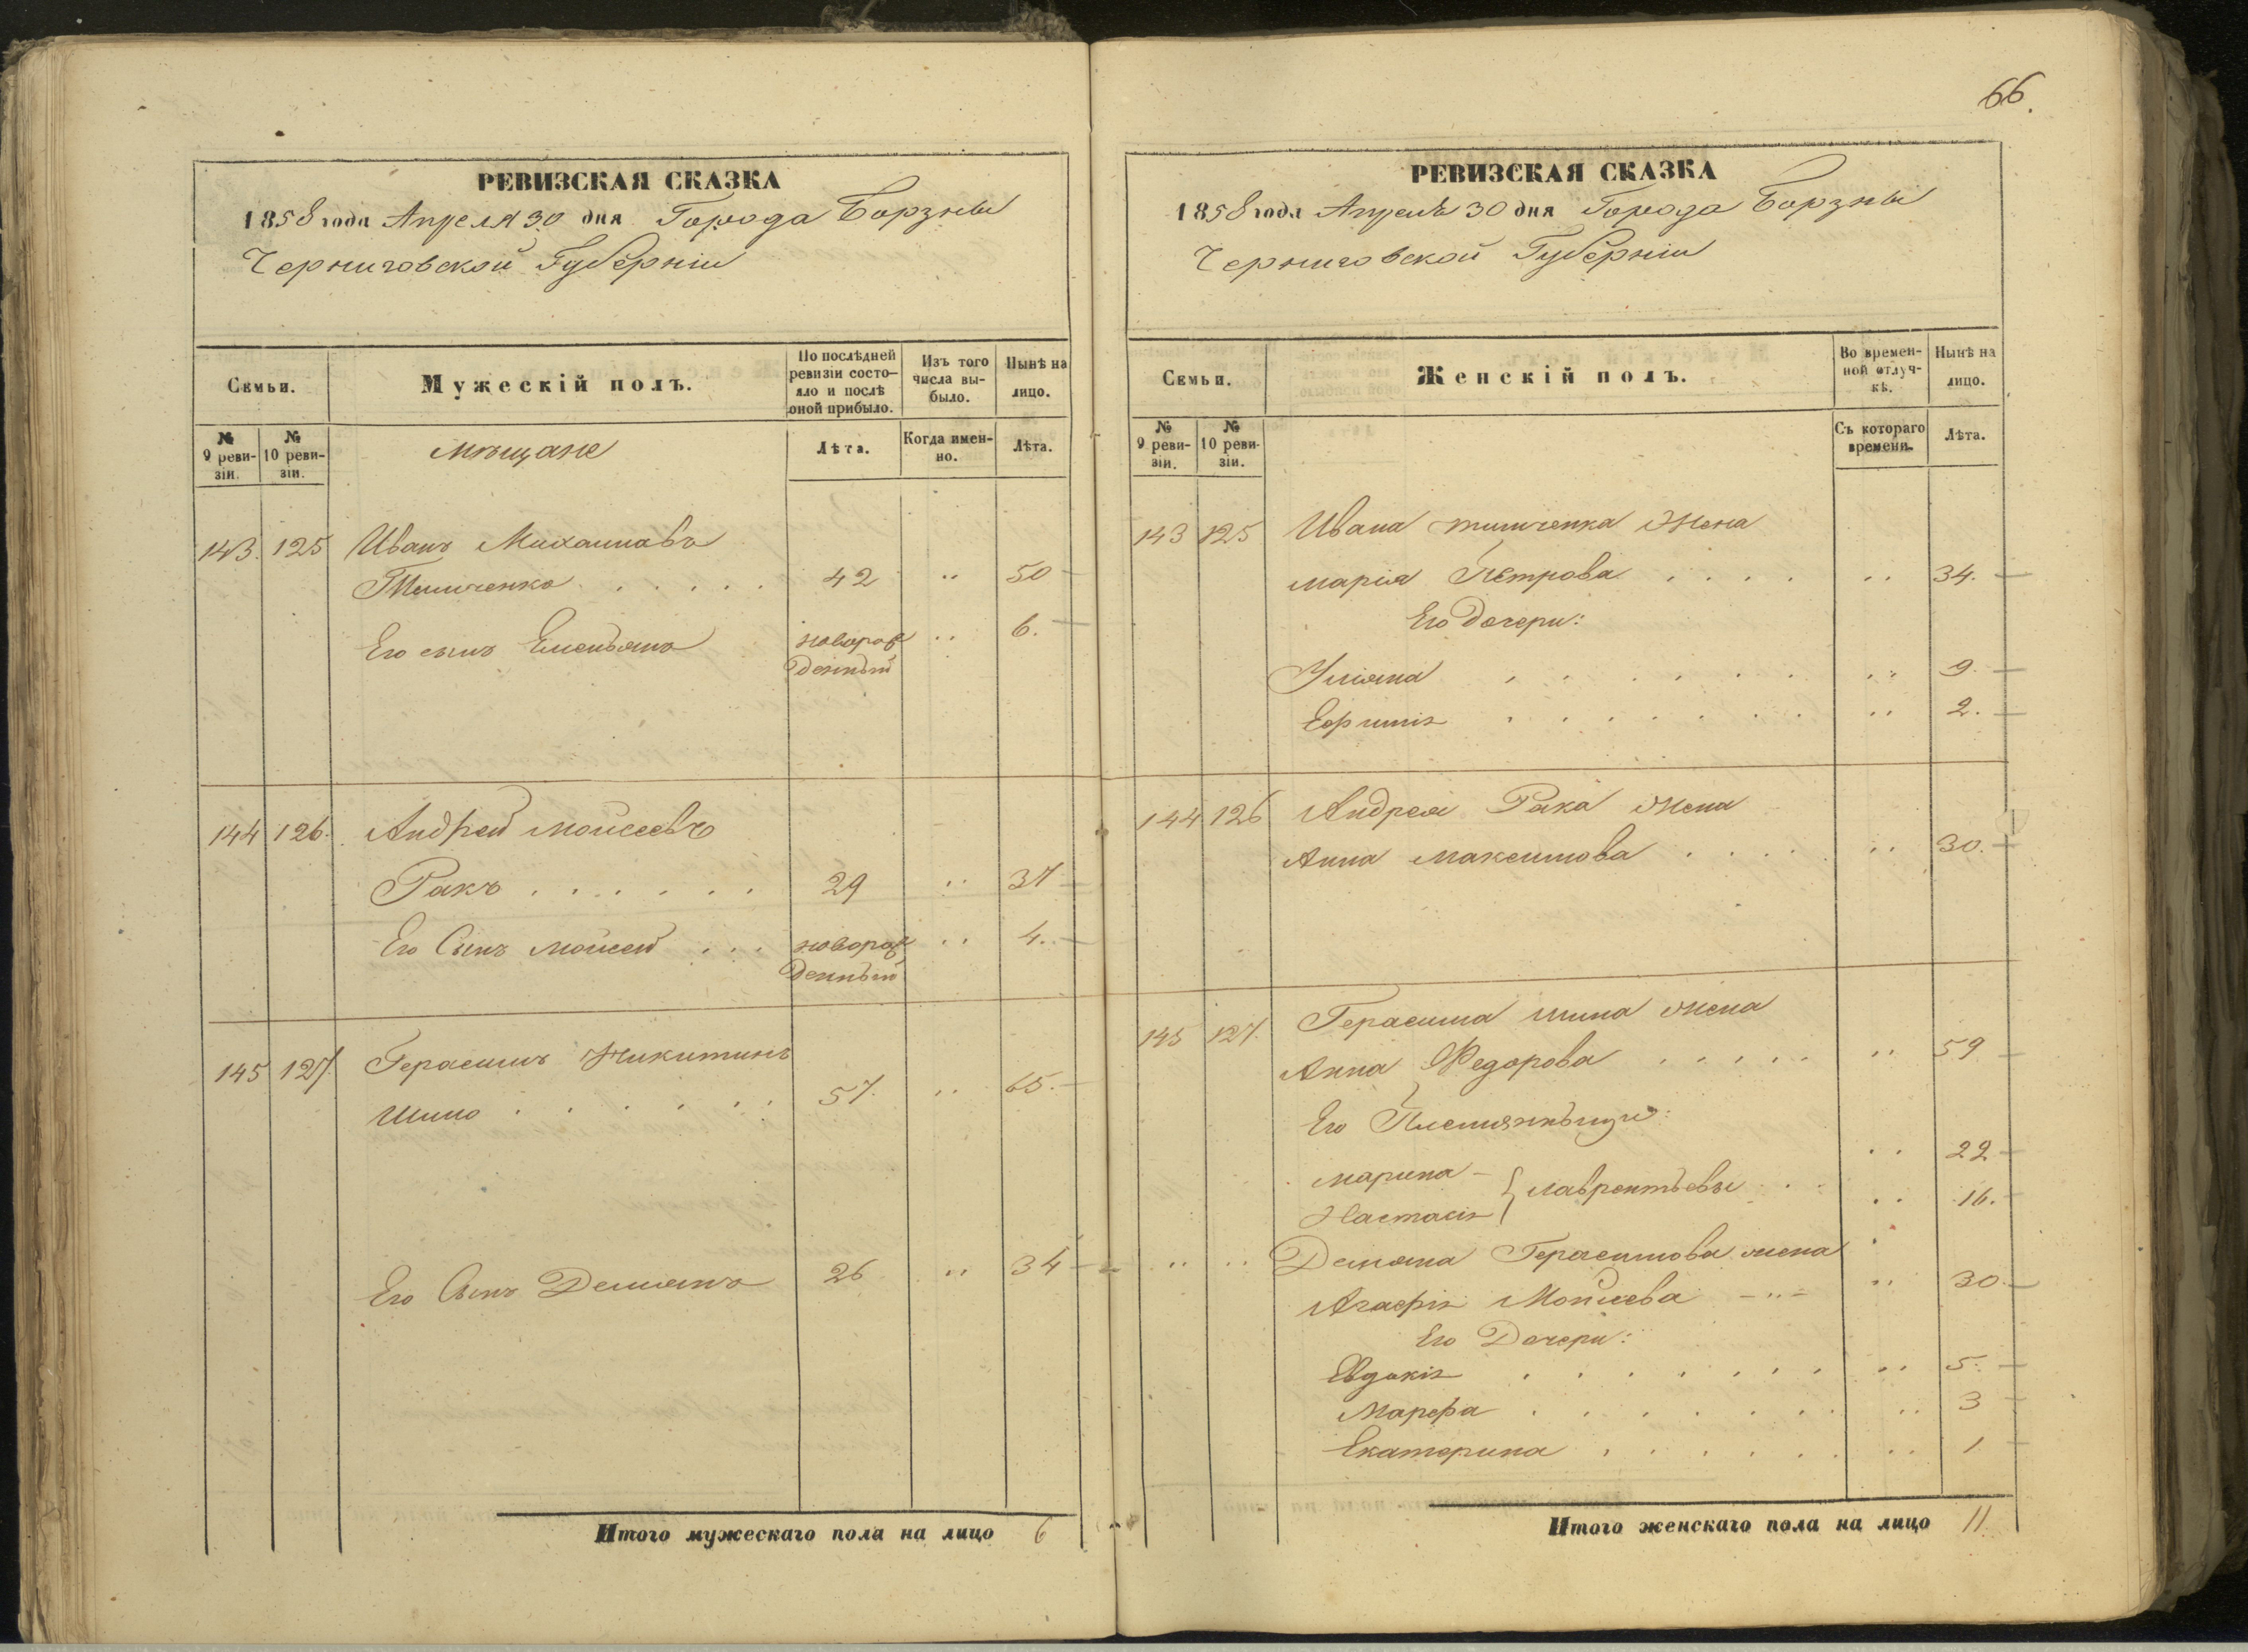 РЕВИЗСКАЯ СКАЗКА
1858 года Апреля 30 дня Города Борзны
Черниговской Губерніи
Семьи.
Мужескій полъ.
По послѣдней ревизіи состояло и послѣ оной прибыло.
Изъ того числа выбыло.
Нынѣ на лицо.
№ 9 ревизіи.
№ 10 ревизіи.
мѣщане
Лѣта.
Когда именно.
Лѣта.
143. 125 Иванъ Михаиловъ
Тимченко . . . . . 42 „ 50
Его сынъ Емельянъ новорож „ 6.
денный
144 126. Андрей Мойсеевъ
Ракъ . . . . . . 29 „ 37
Его Сынъ Мойсей . . . новорож „ 4.
денный
145 127. Герасимъ Никитинъ
Шило . . . . . . 57. „ 65.
Его Сынъ Демьянъ 26 „ 34
Итого мужескаго пола на лицо 6
66.
РЕВИЗСКАЯ СКАЗКА
1858 года Апреля 30 дня Города Борзны
Черниговской Губерніи
Семьи.
Женскій полъ.
Во временной отлучкѣ.
Нынѣ на лицо.
№ 9 ревизіи.
№ 10 ревизіи.
Съ котораго времени.
Лѣта.
143 125 Ивана тимченка жена
марія Петрова . . . . „ 34.
Его Дочери:
Уліяна . . . . . . „ 9.
Ефимія . . . . . . . „ 2.
144 126 Андрея Рака жена
Анна максимова . . . . „ 30.
145 127. Герасима шила жена
Анна Федорова . . . . . „ 59
Его Племянницы:
марина „ 22
Настасія } лаврентьевы . . „ 16.
„ „ Демяна Герасимова жена
Агафія Мойсеева – „ – „ 30.
Его Дочери:
Евдокія . . . . . . . „ 5.
Марфа . . . . . . . „ 3
Екатерина . . . . . „ 1
Итого женскаго пола на лицо 11